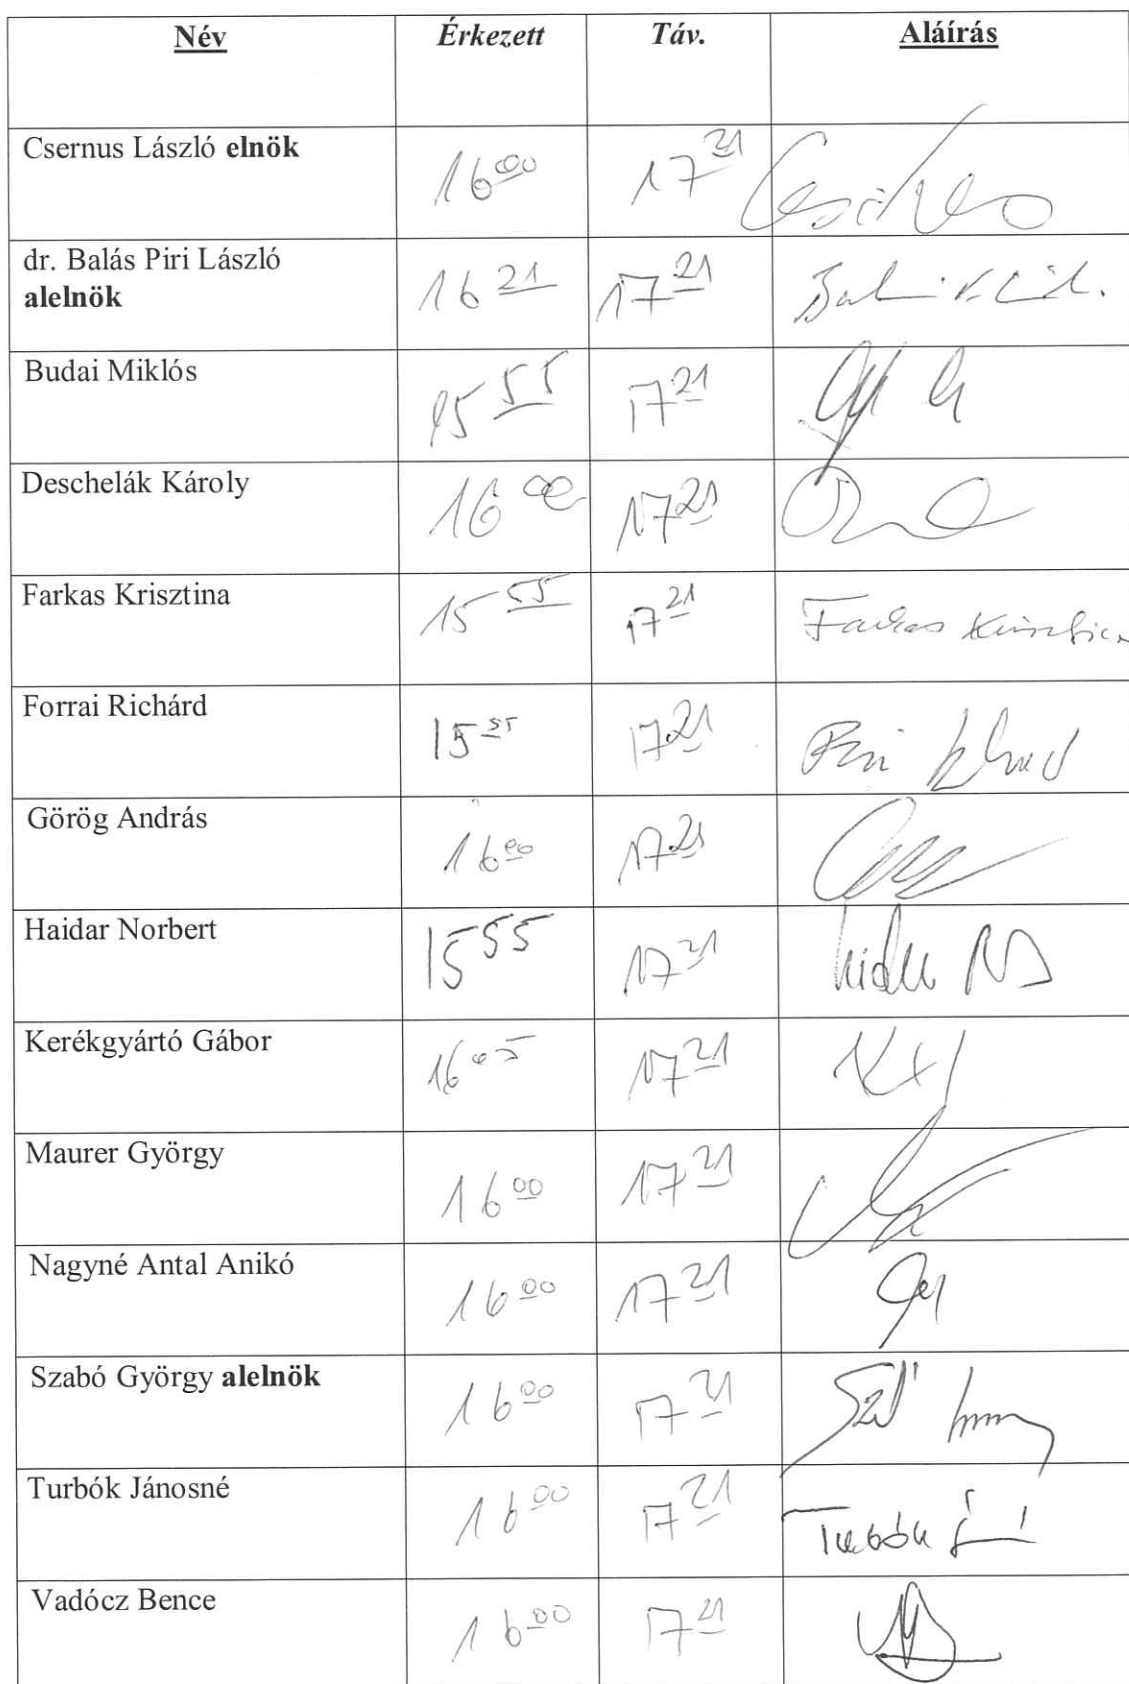 Név Érkezett Táv. Aláírás
Csernus László elnök 16 00 17 21
dr. Balás Piri László 16 21 17 21
alelnök
Budai Miklós 15 55 17 21
Deschelák Károly 16 00 17 21
Farkas Krisztina 15 55 17 21 Farkas Krisztina
Forrai Richárd 15 55 17 21
Görög András 16 00 17 21
Haidar Norbert 15 55 17 21
Kerékgyártó Gábor 16 05 17 21
Maurer György 16 00 17 21
Nagyné Antal Anikó 16 00 17 21
Szabó György alelnök 16 00 17 21
Turbók Jánosné 16 00 17 21
Vadócz Bence 16 00 17 21